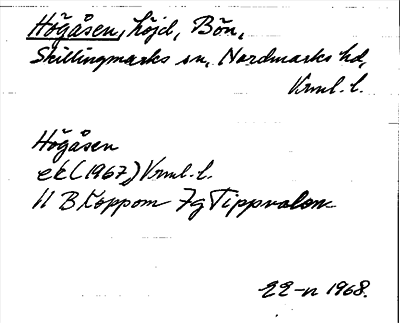 Högåsen, höjd, Bön,
Skillingmarks sn, Nordmarks hd,
Vrml. l.
Högåsen
ek (1967) Vrml. l.
11 B Koppom 7g Tippvalen
22-n 1968.